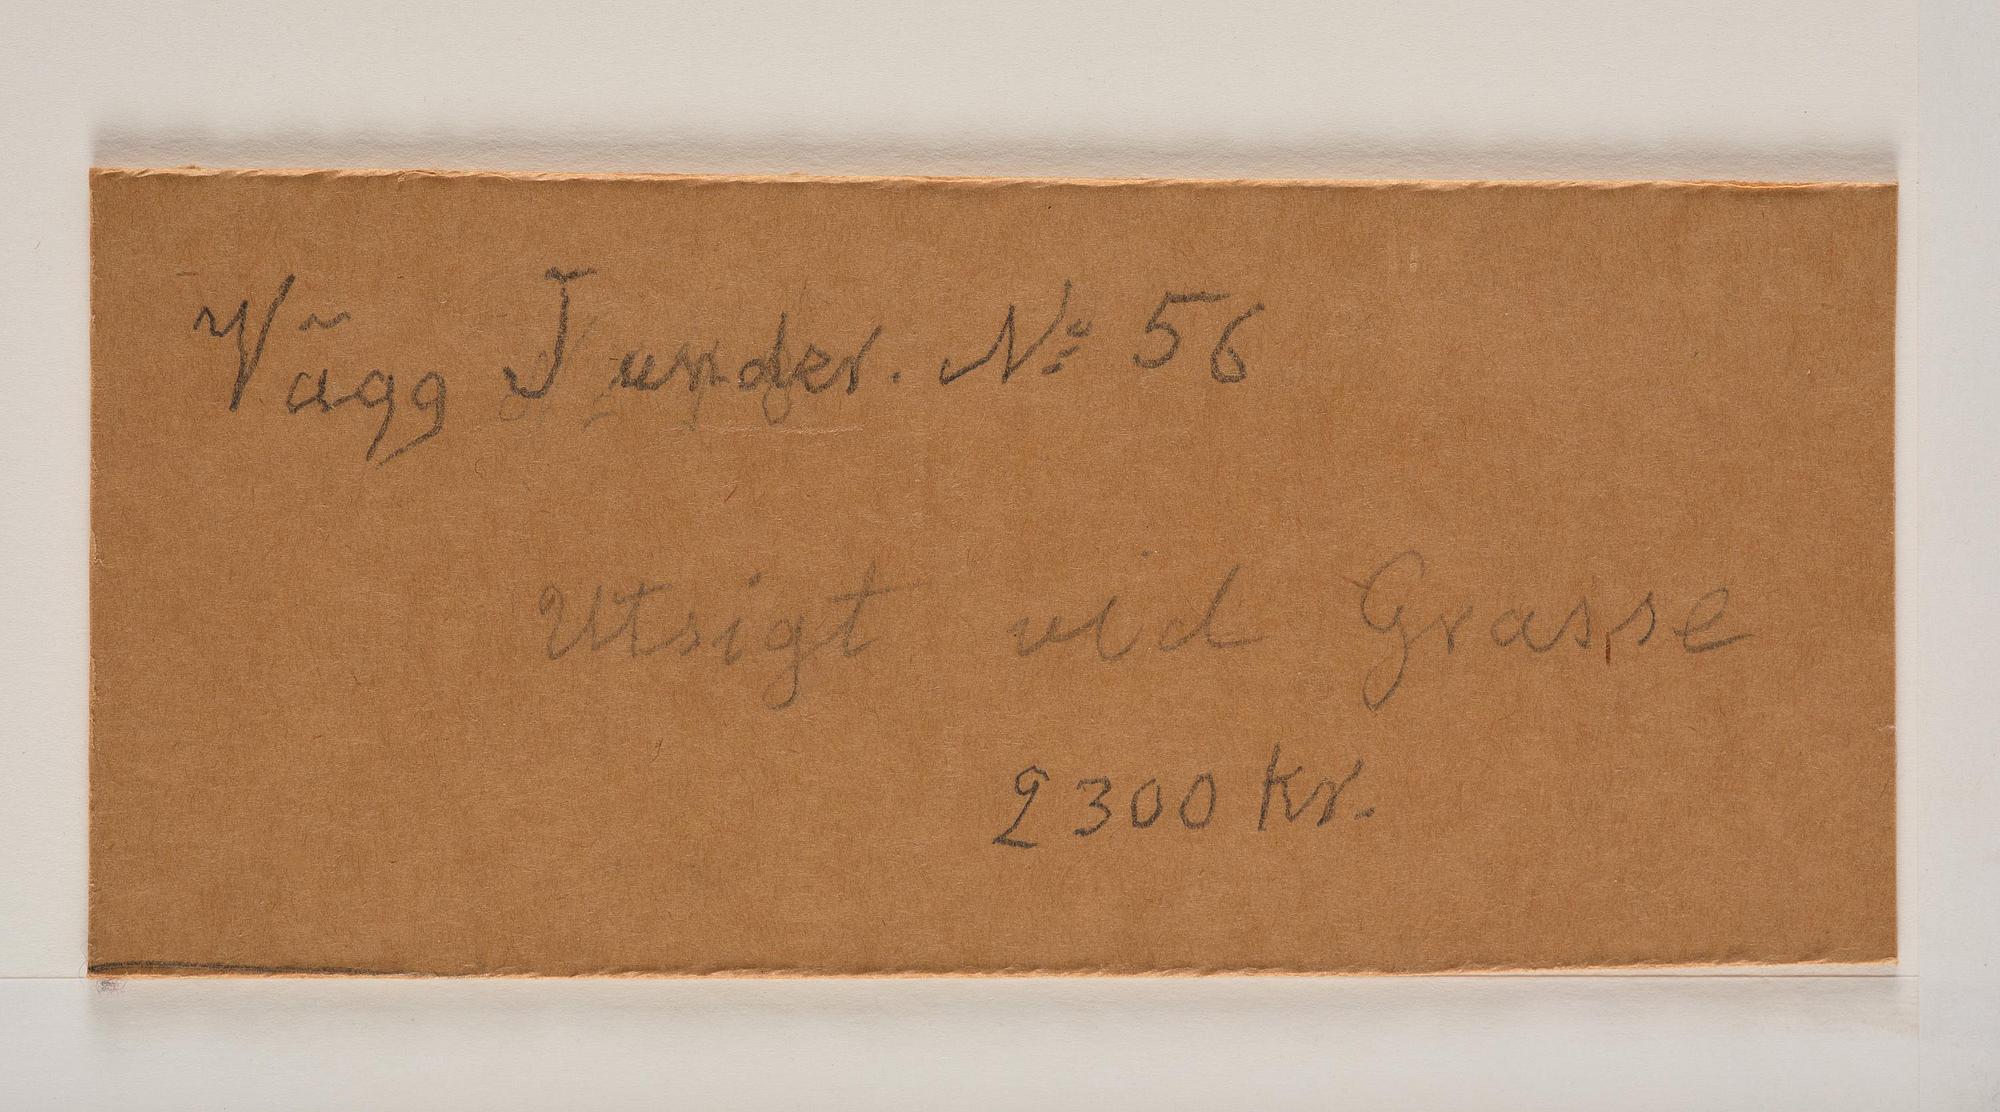 Vägg I under. No 56
Utsigt vid Grasse
2300 kr.